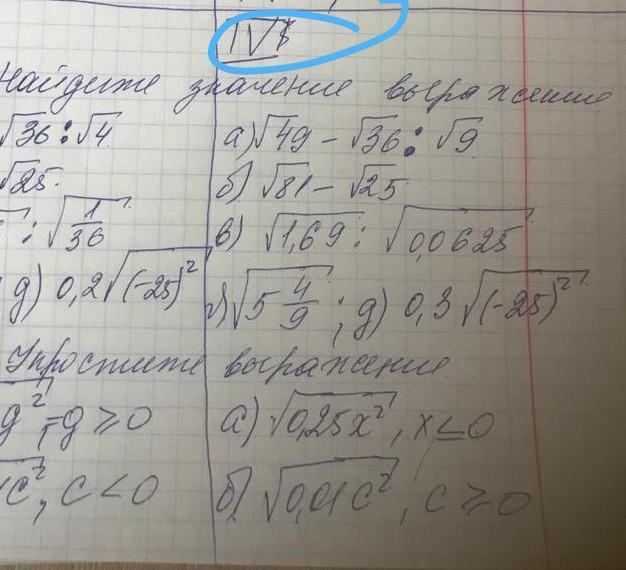 IV в
Найдите значение выражение
√36 : √4 а) √49 - √36 : √9
√25. б) √81 - √25
: √(1/36) в) √1,69 : √0,0625
д) 0,2√(-25)² г) √(5 4/9) ; д) 0,3√(-25)²
Упростите выражение
g², g ≥ 0 а) √0,25x², x ≤ 0
c², c < 0 б) √0,01c², c ≥ 0